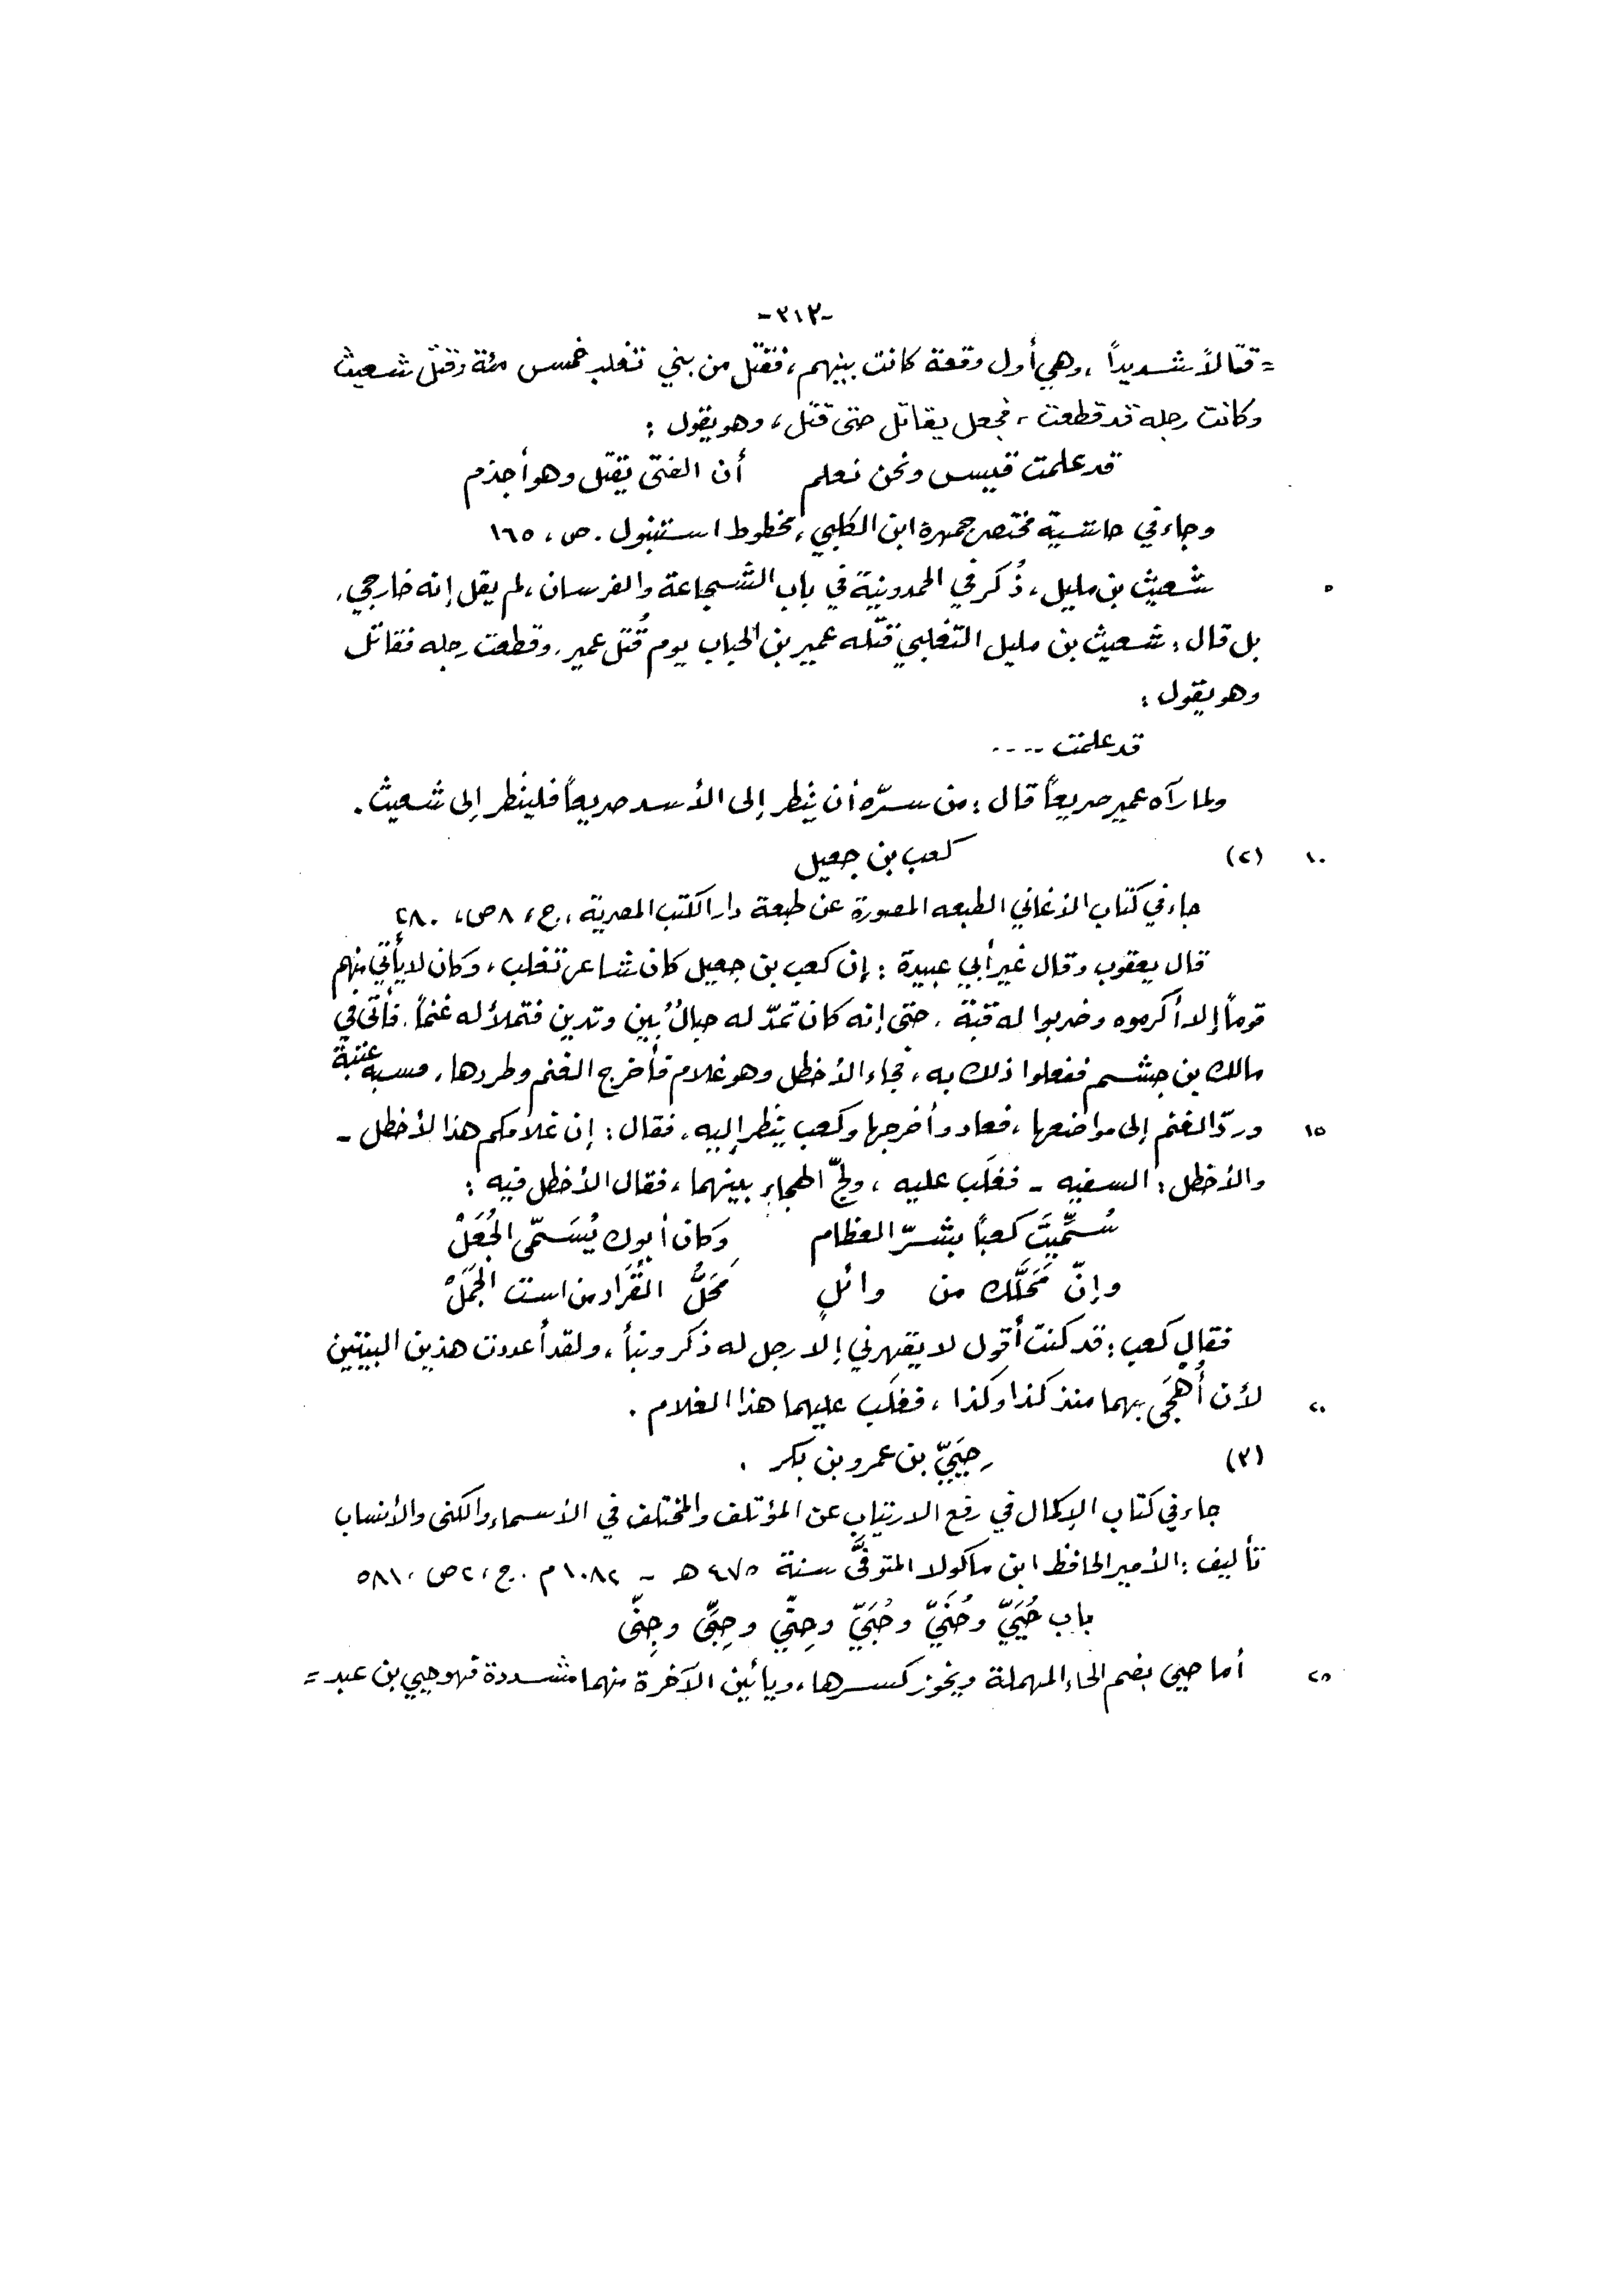 -٣١٢-
= قتالاً شديداً ، وهي أول وقعة كانت بينهم ، فقتل من بني تغلب خمس مئة وقتل شعيث
وكانت رجله قد قطعت ، فجعل يقاتل حتى قتل ، وهو يقول :
قد علمت قيس ونحن نعلم أن الفتى يقتل وهو أجذم
وجاء في حاشية مختصر جمهرة ابن الكلبي ، مخطوط استنبول . ص ، ١٦٥
٥ شعيث بن مليل ، ذُكر في الحمدونية في باب الشجاعة والفرسان ، لم يقل إنه خارجي ،
بل قال : شعيث بن مليل التغلبي قتله عمير بن الحباب يوم قُتل عمير ، وقطعت رجله فقاتل
وهو يقول :
قد علمت ....
ولما رآه عمير صريعاً قال : من سرّه أن ينظر إلى الأسد صريعاً فلينظر إلى شعيث .
١٠ (٢) كعب بن جعيل
جاء في كتاب الأغاني الطبعه المصورة عن طبعة دار الكتب المصرية ، ج ، ٨ ص ، ٢٨٠
قال يعقوب وقال غير أبي عبيدة : إن كعب بن جعيل كان شاعر تغلب ، وكان لا يأتي منهم
قوماً إلا أكرموه وضربوا له قبّة ، حتى إنه كان تمدّ له حبالٌ بين وتدين فتملأ له غنماً . فأتى في
مالك بن جشم ففعلوا ذلك به ، فجاء الأخطل وهو غلام فأخرج الغنم وطردها ، فسبه عتبة
١٥ وردّ الغنم إلى مواضعها ، فعاد وأخرجها وكعب ينظر إليه ، فقال : إن غلامكم هذا لأخطل -
والأخطل : السفيه - فغلَب عليه ، ولجّ الهجاء بينهما ، فقال الأخطل فيه :
سُمِّيتَ كعباً بشرّ العظام وكان أبوك يُسَمّى الجُعَلْ
وإنّ مَحَلَّك من وائلٍ مَحَلُّ القُرَاد من است الجَمَلْ
فقال كعب : قد كنت أقول لا يقهرني إلا رجل له ذكر ونبأ ، ولقد أعددت هذين البيتين
٢٠ لأن أُهْجَى بهما منذ كذا وكذا ، فغلَب عليهما هذا الغلام .
(٣) حِيَيّ بن عمرو بن بكر .
جاء في كتاب الإكمال في رفع الارتياب عن المؤتلف والمختلف في الأسماء والكنى والأنساب
تأليف : الأمير الحافظ ابن ماكولا المتوفَّى سنة ٤٧٥ هـ - ١٠٨٢ م . ج ، ٢ ص ، ٥٨١
باب حُيَيّ وحُنَيّ وحُبَيّ وحِنّي وحِبَّى وجِنّى
٢٥ أما حيي بضم الحاء المهملة ويجوز كسرها ، وياءين الآخرة منهما مشددة فهو حيي بن عبد =